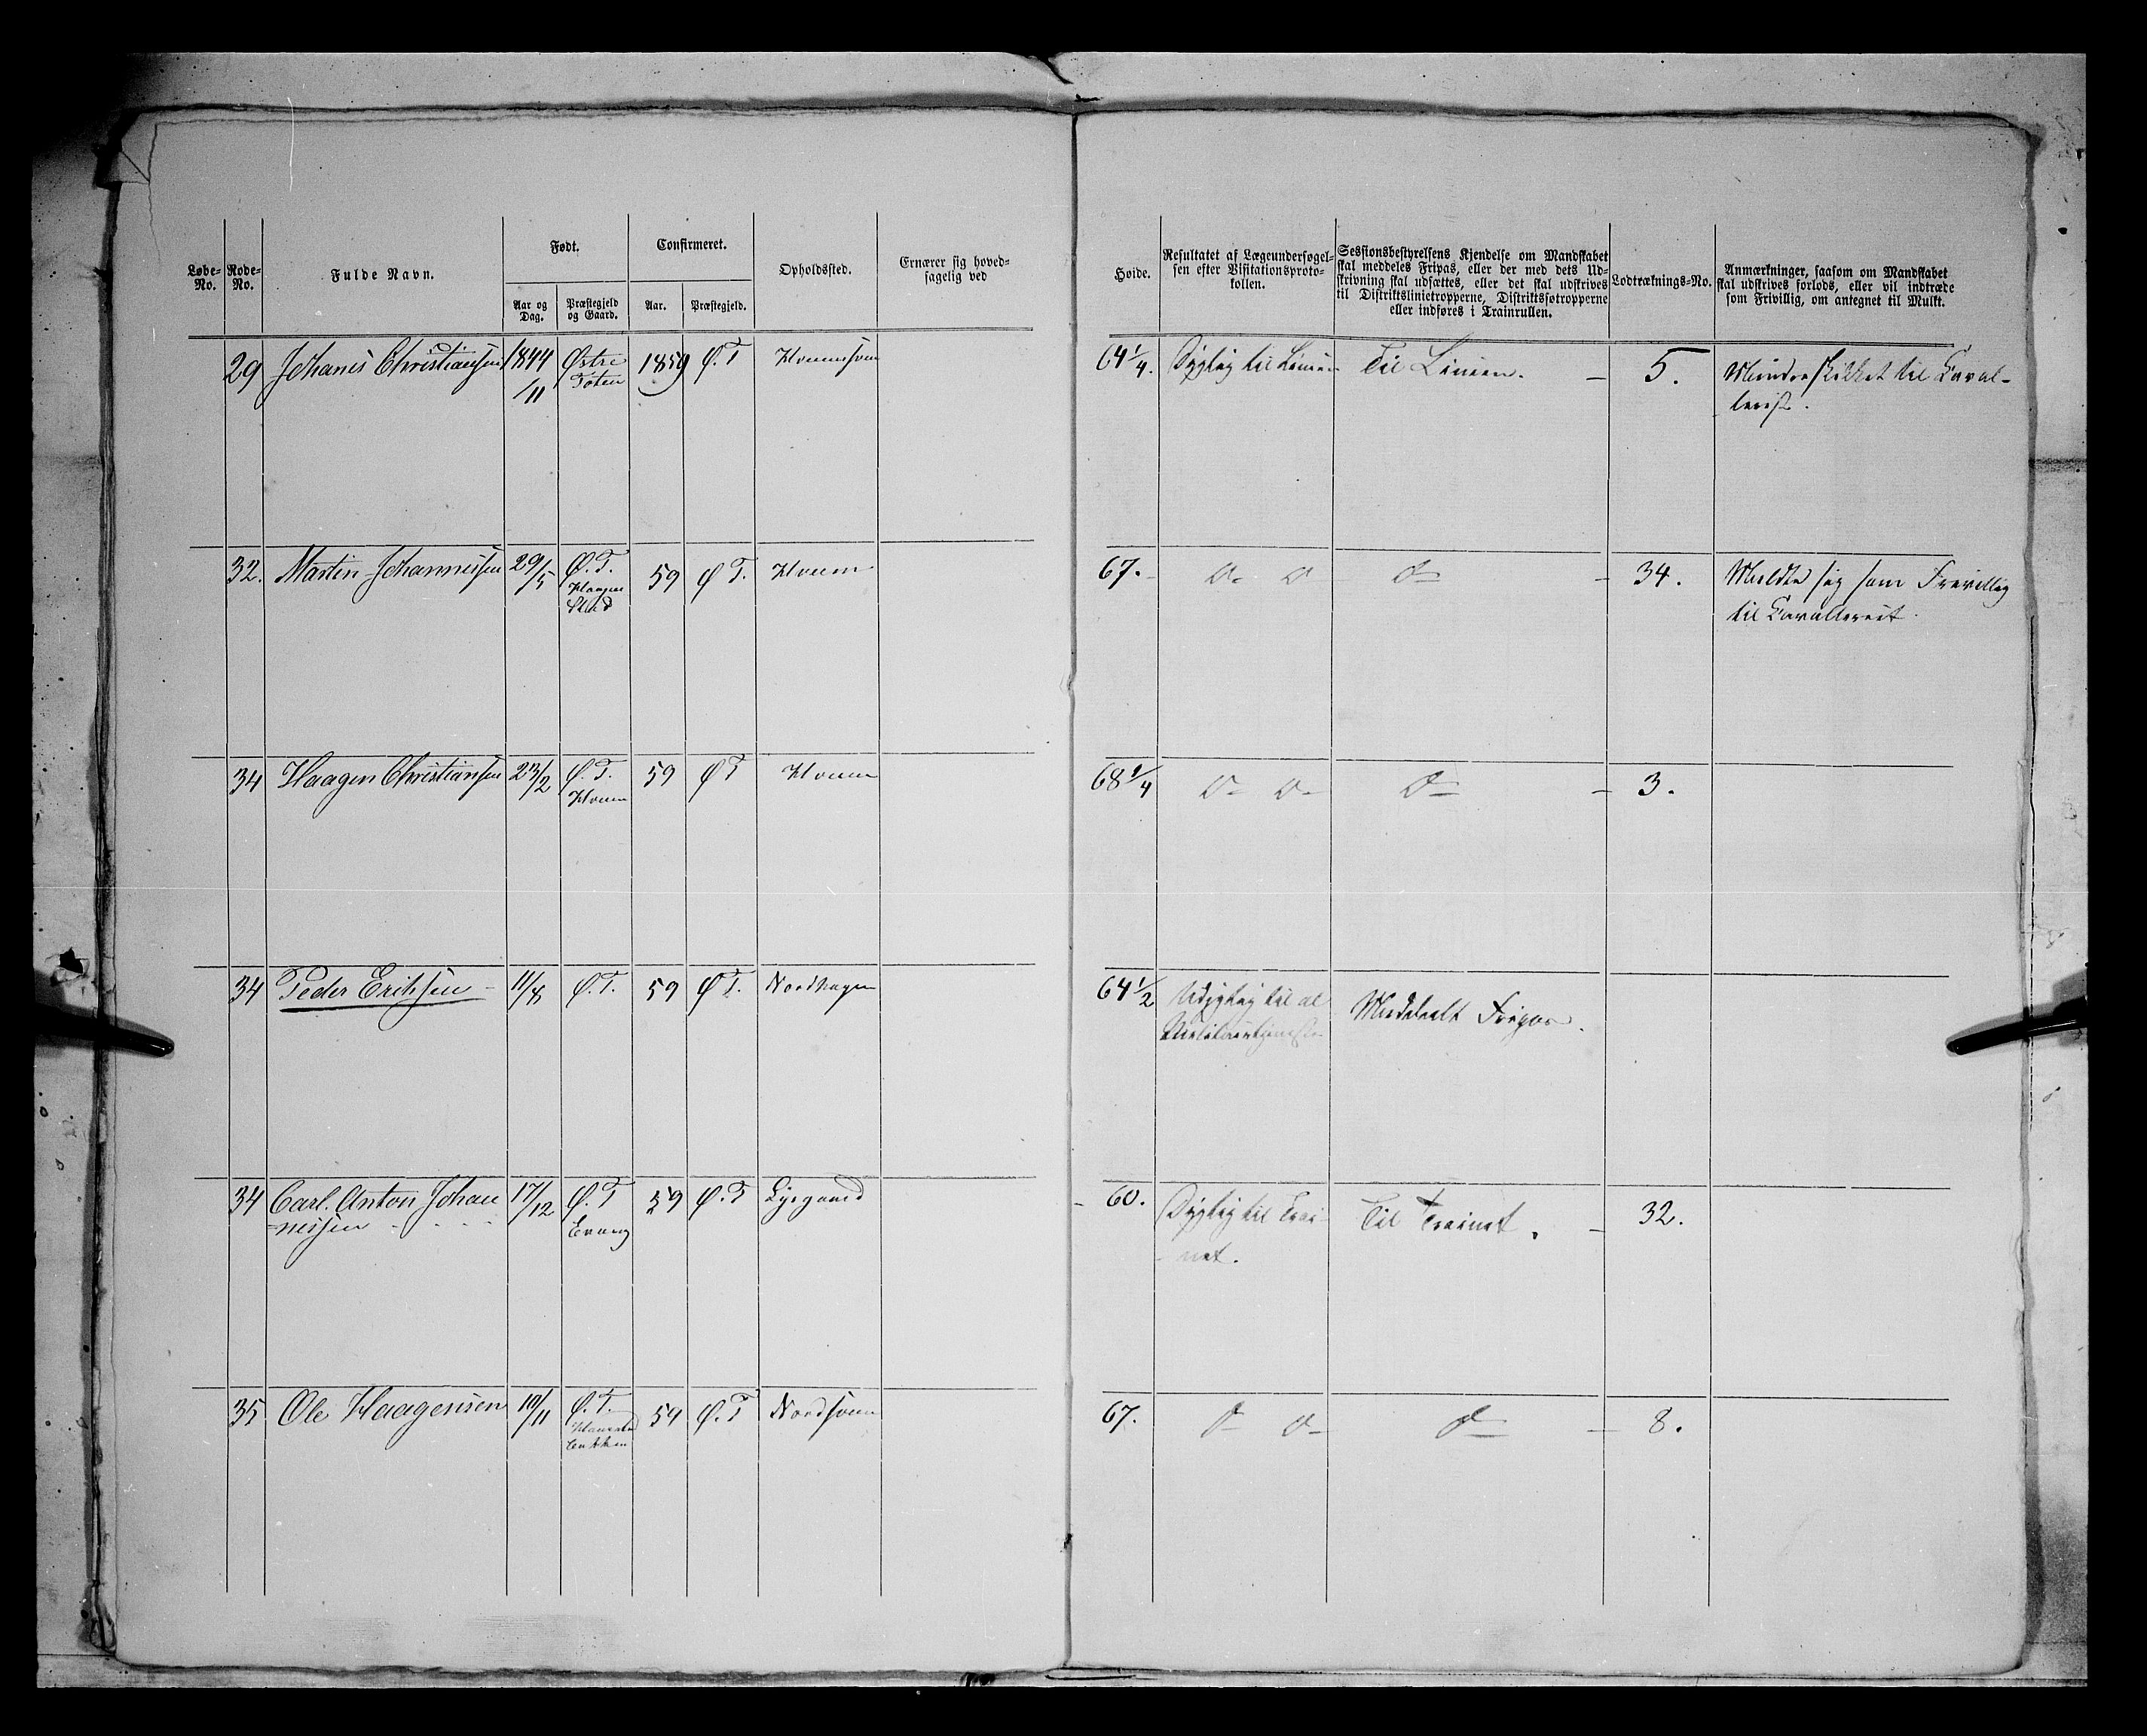 Løbe-No.
Rode-No.
Fulde Navn.
Født.
Aar og Dag.
Præstegjeld og Gaard.
Confirmeret.
Aar.
Præstegjeld.
Opholdssted.
Ernærer sig hoved-
sagelig ved
Høide.
Resultatet af Lægeundersøgel-
sen efter Visitationsproto-
kollen.
Sessionsbestyrelsens Kjendelse om Mandskabet
skal meddeles Fripas, eller der med dets Ud-
skrivning skal udsættes, eller det skal udskrives
til Distriktslinietropperne, Distriktsføtropperne
eller indføres i Trainrullen.
Lodtræknings-No.
Anmærkninger, saasom om Mandskabet
skal udskrives forlods, eller vil indtræde
som Frivillig, om antegnet til Mulkt.
29 Johanis Christiansen 1844 Østre 1859 Ø.T 64 1/4. Dygtig til Linien Til Linien. – 5. Mindre skikket til Caval-
/11 Toten lerist.
32. Martin Johannissen 29/5 Ø.T. 59 Ø T. Hveem 67. D- D D- – 34. Meldte sig som Frivillig
til Cavalleriet.
34 Haagen Christiansen 23/2 Ø.T. 59 Ø T Hveem 68 1/4 D- D- D- – 3.
Hveem
34 Peder Eriksen – 11/8 Ø.T. 59 Ø T. Nordhagen 64 1/2 Udygtig til al Meddeelt Fripas.
Militairtjeneste
34 Carl Anton Johan 17/12 Ø.T 59 Ø.T Lysgaard – 60. Dygtig til Trai- Til Trainet. – 32.
-nissen net.
35 Ole Haagensen 10/11 Ø.T. 59 Ø.T 67. D- D- D- – 8.